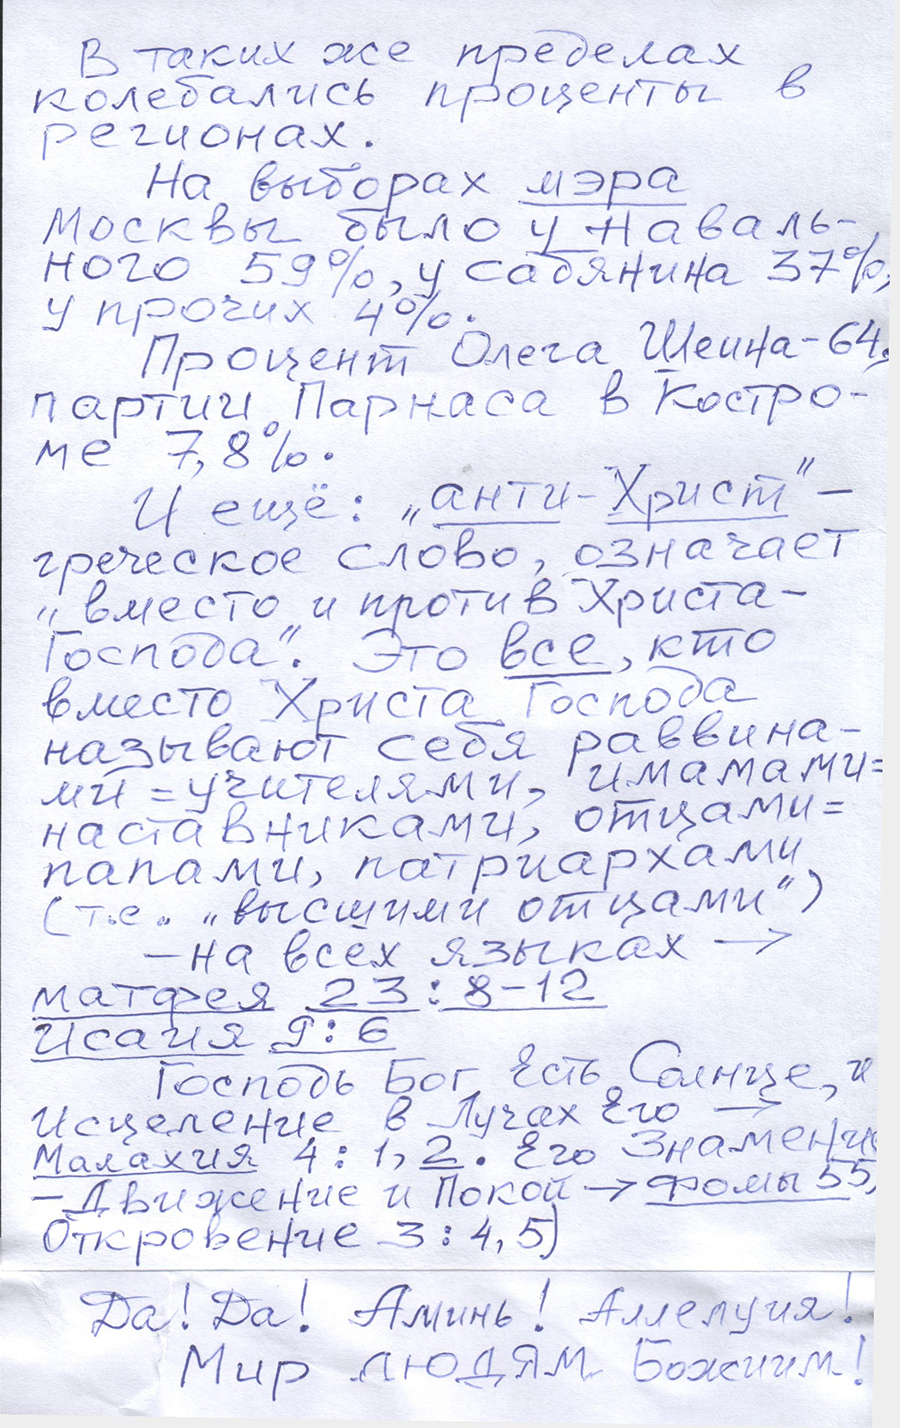 В таких же пределах
колебались проценты в
регионах.
На выборах мэра
Москвы было у Наваль-
ного 59%, у Сабянина 37%,
у прочих 4%.
Процент Олега Шеина - 64,
партии Парнаса в Костро-
ме 7,8%.
И ещё: „анти-Христ" –
греческое слово, означает
„вместо и против Христа-
Господа". Это все, кто
вместо Христа Господа
называют себя раввина-
ми = учителями, имамами =
наставниками, отцами =
папами, патриархами
(т.е. „высшими отцами")
– на всех языках →
Матфея 23:8-12
Исаия 9:6
Господь Бог Есть Солнце, и
Исцеление в Лучах Его →
Малахия 4:1,2. Его Знамение
– Движение и Покой → Фомы 55,
Откровение 3:4,5)
Да! Да! Аминь! Аллелуия!
Мир людям Божиим!